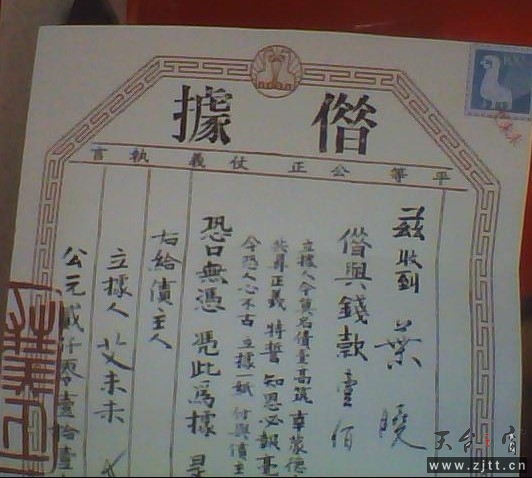 僣據
平等公正仗義執言
茲收到 葉 曉
僣與錢款壹佰
立據人今負名債臺高筑 幸蒙德
正義 特誓 知恩必報毫
今恐人心不古 立據一紙 付與債主
恐口無憑 憑此爲據
右給債主人
立據人 艾未未
公元貳仟零壹拾壹
天台之窗
www.zjtt.cn